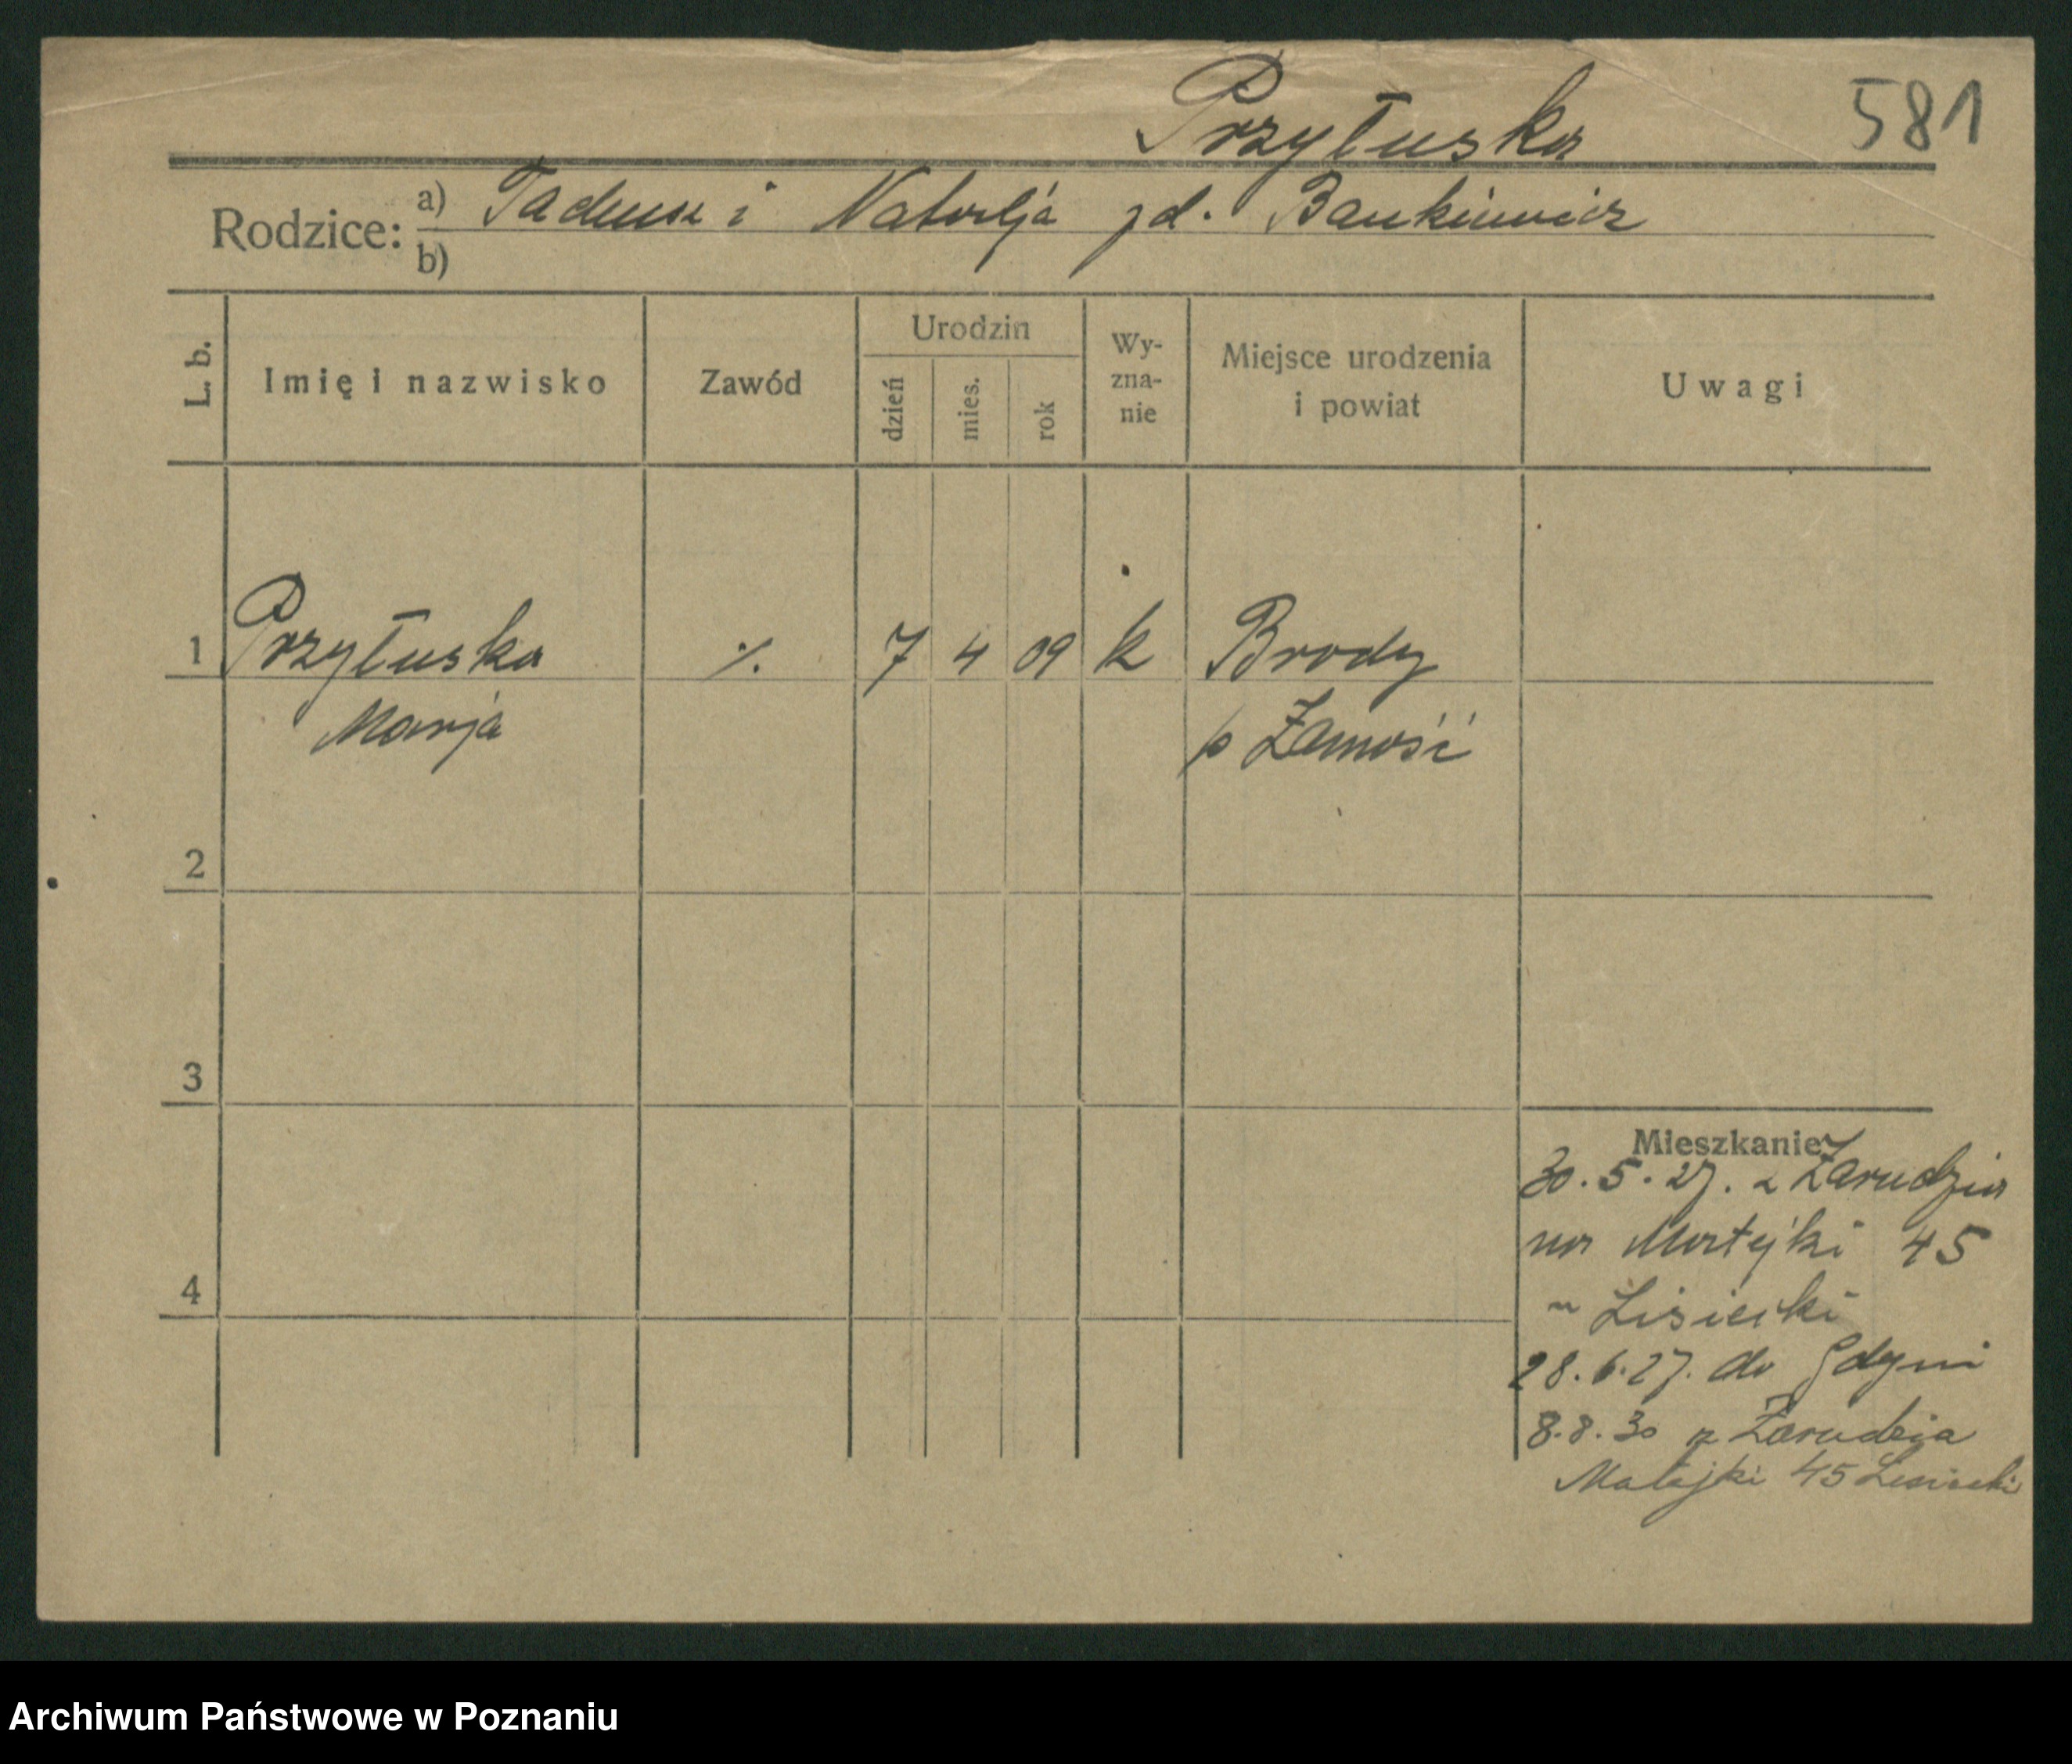 Przyłuska 581
Rodzice: a) Tadeusz i Natalja zd. Bankiewicz
b)
L. b. Imię i nazwisko Zawód Urodzin dzień mies. rok Wy-zna-nie Miejsce urodzenia i powiat Uwagi
1 Przyłuska ./. 7 4 09 k Brody
Marja p Zamość
2
3
Mieszkanie
30.5.27. z Zarudzia
na Matejki 45
4
u Lisiecki
28.6.27. do Gdyni
8.8.30 z Zarudzia
Matejki 45 Lisiecki
Archiwum Państwowe w Poznaniu